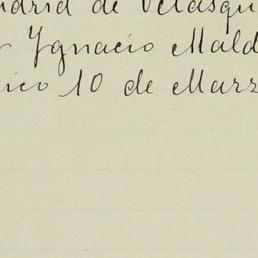 adrid de Velasqu
Ygnacio Mald
ico 10 de Marz